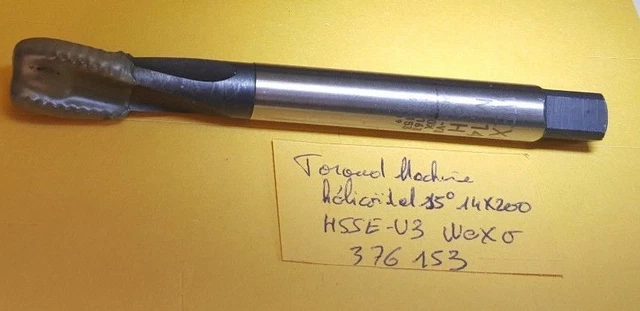 Taraud Machine
hélicoïdal 15° 14x200
HSSE-V3 WEXO
376 153